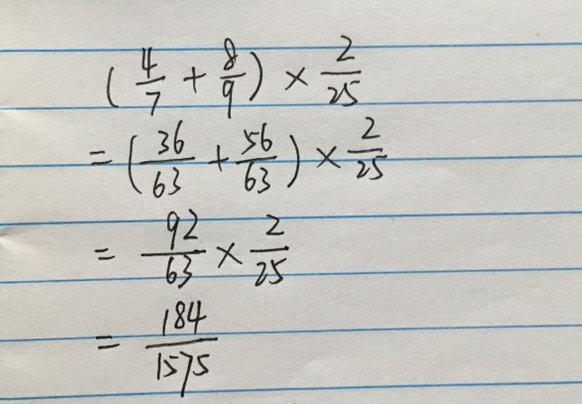 (4/7 + 8/9) × 2/25
= (36/63 + 56/63) × 2/25
= 92/63 × 2/25
= 184/1575